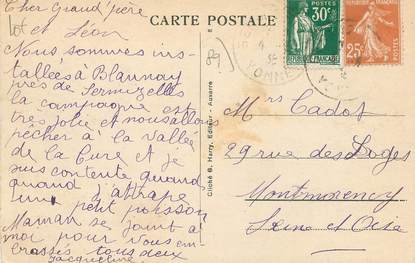 CARTE POSTALE
Cher Grand'père
et Léon
Nous sommes ins-
tallées à Blannay
près de Sermizelles
la campagne est
très jolie et nous allons
pêcher à la vallée
de la Cure et je
suis contente quand
quand j'attrape
un petit poisson
Maman se joint à
moi pour vous em-
brasser tous deux
Jacqueline
Cliché B. Harry, Editeur - Auxerre
89
30c
REPUBLIQUE FRANÇAISE
25c
YONNE
Mrs Cadot
29 rue des Loges
Montmorency
Seine et Oise